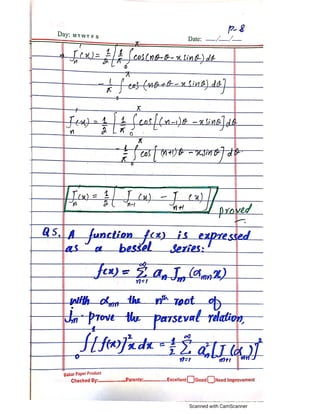 P-8
Day: M T W T F S Date: __/__/__
J'_n(x) = 1/2 [ 1/π ∫_0^π cos(nθ-θ-x sinθ) dθ
- 1/π ∫_0^π cos(nθ+θ-x sinθ) dθ ]
J'_n(x) = 1/2 [ 1/π ∫_0^π cos[(n-1)θ - x sinθ] dθ
- 1/π ∫_0^π cos[(n+1)θ - x sinθ] dθ.
J'_n(x) = 1/2 [ J_{n-1}(x) - J_{n+1}(x) ]
proved
Q5. A function f(x) is expressed
as a bessel series:
f(x) = Σ_{n=1}^∞ a_n J_m(α_{mn} x)
with α_{mn} the nth root of
J_m. prove the parseval relation,
∫_0^1 [f(x)]² x dx = 1/2 Σ_{n=1}^∞ a_n² [J_{m+1}(α_{mn})]²
Paper Product
Checked By: Parents: Excellent Good Need Improvement
Scanned with CamScanner